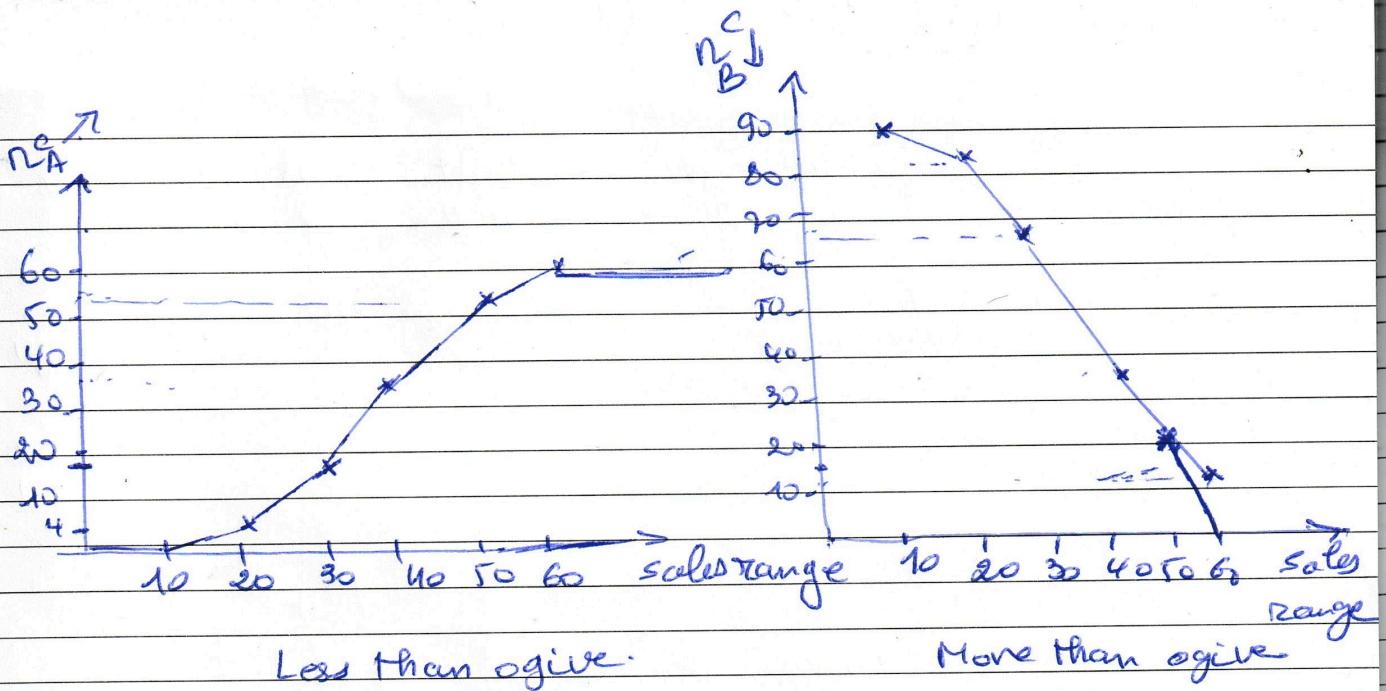 n^c_A ↗
60
50
40
30
20
10
4
10 20 30 40 50 60 sales range
Less than ogive.
n^c_B ↓
90
80
70
60
50
40
30
20
10
10 20 30 40 50 60 sales
range
More than ogive